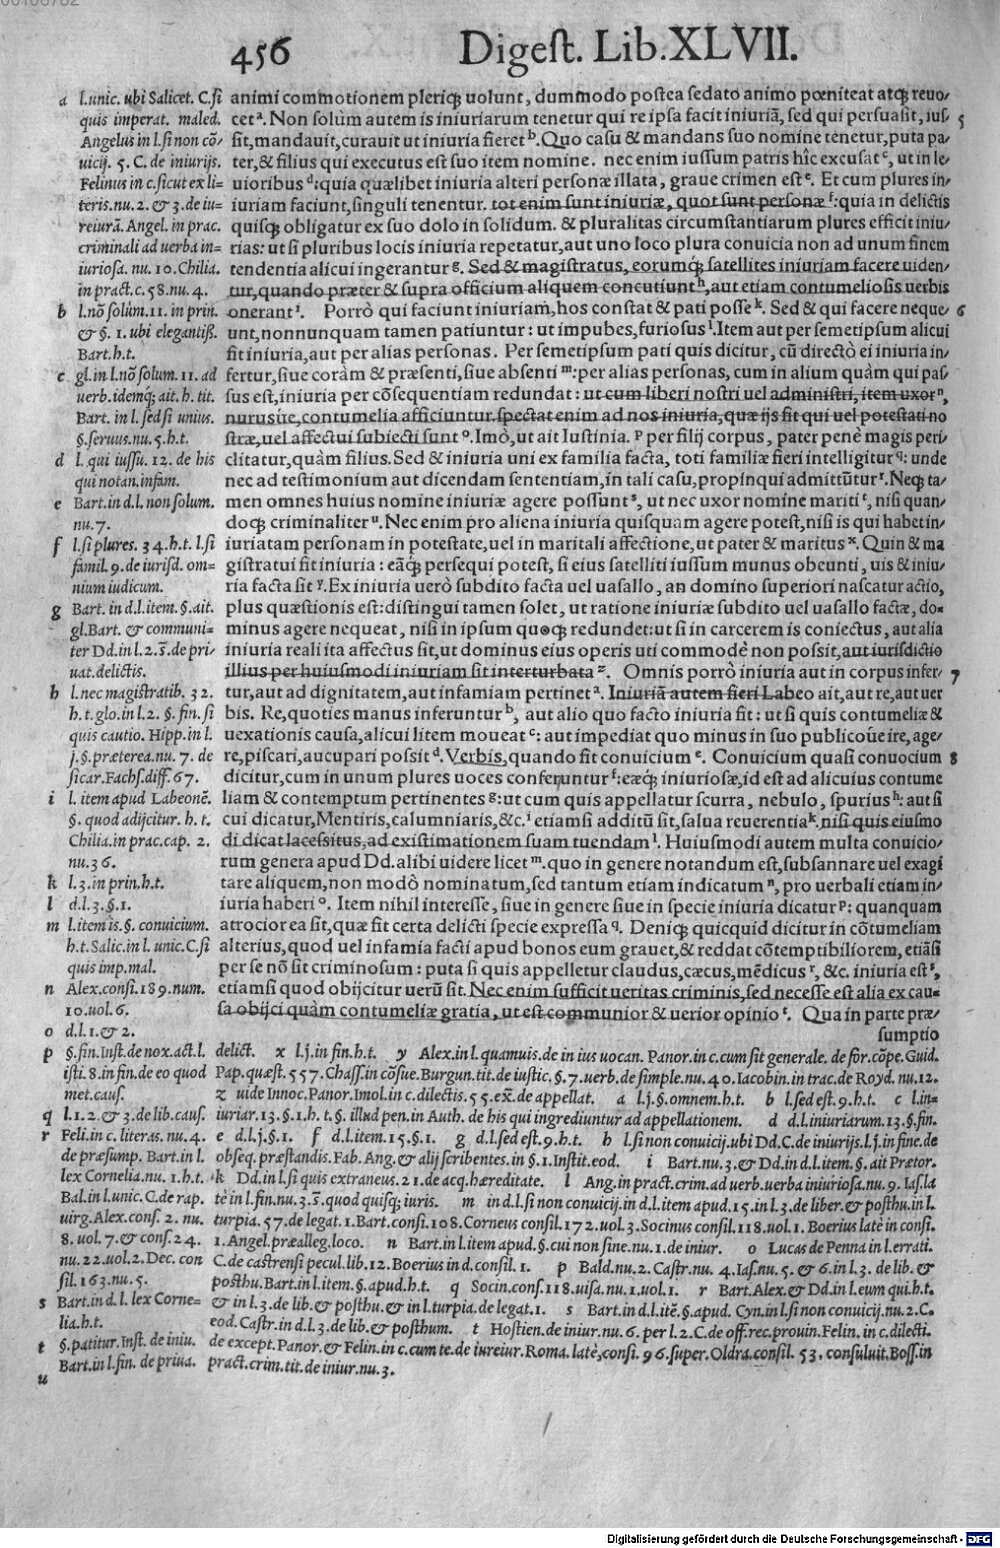 456 Digest. Lib. XLVII.
a l. unic. ubi Salicet. C. si
quis imperat. maled.
Angelus in l. si non cō-
uicij. 5. C. de iniurijs.
Felinus in c. sicut ex li-
teris. nu. 2. & 3. de iu-
reiurā. Angel. in prac.
criminali ad uerba in-
iuriosa. nu. 10. Chilia.
in pract. c. 58. nu. 4.
b l. nō solùm. 11. in prin.
& §. 1. ubi elegantiß.
Bart. h. t.
c gl. in l. nō solum. 11. ad
uerb. idemq; ait. h. tit.
Bart. in l. sed si unius.
§. seruus. nu. 5. h. t.
d l. qui iussu. 12. de his
qui notan. infam.
e Bart. in d. l. non solum.
nu. 7.
f l. si plures. 34. h. t. l. si
famil. 9. de iurisd. om-
nium iudicum.
g Bart. in d. l. item. §. ait.
gl. Bart. & communi-
ter Dd. in l. 2. s̄. de pri-
uat. delictis.
h l. nec magistratib. 32.
h. t. glo. in l. 2. §. fin. si
quis cautio. Hipp. in l.
j. §. præterea. nu. 7. de
sicar. Fachs. diff. 67.
i l. item apud Labeonē.
§. quod adijcitur. h. t.
Chilia. in prac. cap. 2.
nu. 36.
k l. 3. in prin. h. t.
l d. l. 3. §. 1.
m l. item is. §. conuicium.
h. t. Salic. in l. unic. C. si
quis imp. mal.
n Alex. consi. 189. num.
10. uol. 6.
o d. l. 1. & 2.
p §. fin. Inst. de nox. act. l.
isti. 8. in fin. de eo quod
met. caus.
q l. 1. 2. & 3. de lib. caus.
r Feli. in c. literas. nu. 4.
de præsump. Bart. in l.
lex Cornelia. nu. 1. h. t.
Bal. in l. unic. C. de rap.
uirg. Alex. cons. 2. nu.
8. uol. 7. & cons. 24.
nu. 22. uol. 2. Dec. con
sil. 163. nu. 5.
s Bart. in d. l. lex Corne-
lia. h. t.
t §. patitur. Inst. de iniu.
u Bart. in l. fin. de priua.
animi commotionem pleriq; uolunt, dummodo postea sedato animo pœniteat atq; reuo-
cet a. Non solùm autem is iniuriarum tenetur qui re ipsa facit iniuriā, sed qui persuasit, ius- 5
sit, mandauit, curauit ut iniuria fieret b. Quo casu & mandans suo nomine tenetur, puta pa-
ter, & filius qui executus est suo item nomine. nec enim iussum patris hîc excusat c, ut in le-
uioribus d: quia quælibet iniuria alteri personæ illata, graue crimen est e. Et cum plures in-
iuriam faciunt, singuli tenentur. tot enim sunt iniuriæ, quot sunt personæ f: quia in delictis
quisq; obligatur ex suo dolo in solidum. & pluralitas circumstantiarum plures efficit iniu-
rias: ut si pluribus locis iniuria repetatur, aut uno loco plura conuicia non ad unum finem
tendentia alicui ingerantur g. Sed & magistratus, eorumq; satellites iniuriam facere uiden-
tur, quando præter & supra officium aliquem concutiunt h, aut etiam contumeliosis uerbis
onerant i. Porrò qui faciunt iniuriam, hos constat & pati posse k. Sed & qui facere neque- 6
unt, nonnunquam tamen patiuntur: ut impubes, furiosus l. Item aut per semetipsum alicui
fit iniuria, aut per alias personas. Per semetipsum pati quis dicitur, cū directò ei iniuria in-
fertur, siue coràm & præsenti, siue absenti m: per alias personas, cum in alium quàm qui pas-
sus est, iniuria per cōsequentiam redundat: ut cum liberi nostri uel administri, item uxor n,
nurusue, contumelia afficiuntur. spectat enim ad nos iniuria, quæ ijs fit qui uel potestati no
stræ, uel affectui subiecti sunt o. Imò, ut ait Iustinia. p per filij corpus, pater penè magis peri-
clitatur, quàm filius. Sed & iniuria uni ex familia facta, toti familiæ fieri intelligitur q: unde
nec ad testimonium aut dicendam sententiam, in tali casu, propinqui admittūtur r. Neq; ta-
men omnes huius nomine iniuriæ agere possunt s, ut nec uxor nomine mariti t, nisi quan-
doq; criminaliter u. Nec enim pro aliena iniuria quisquam agere potest, nisi is qui habet in-
iuriatam personam in potestate, uel in maritali affectione, ut pater & maritus x. Quin & ma
gistratui fit iniuria: eāq; persequi potest, si eius satelliti iussum munus obeunti, uis & iniu-
ria facta sit y. Ex iniuria uerò subdito facta uel uasallo, an domino superiori nascatur actio,
plus quæstionis est: distingui tamen solet, ut ratione iniuriæ subdito uel uasallo factæ, do-
minus agere nequeat, nisi in ipsum quoq; redundet: ut si in carcerem is coniectus, aut alia
iniuria reali ita affectus sit, ut dominus eius operis uti commodè non possit, aut iurisdictio
illius per huiusmodi iniuriam sit interturbata z. Omnis porrò iniuria aut in corpus infer- 7
tur, aut ad dignitatem, aut infamiam pertinet a. Iniuriā autem fieri Labeo ait, aut re, aut uer
bis. Re, quoties manus inferuntur b, aut alio quo facto iniuria fit: ut si quis contumeliæ &
uexationis causa, alicui litem moueat c: aut impediat quo minus in suo publicoūe ire, age-
re, piscari, aucupari possit d. Verbis, quando fit conuicium e. Conuicium quasi conuocium 8
dicitur, cum in unum plures uoces conferuntur f: eæq; iniuriosæ, id est ad alicuius contume
liam & contemptum pertinentes g: ut cum quis appellatur scurra, nebulo, spurius h: aut si
cui dicatur, Mentiris, calumniaris, &c. i etiamsi additū sit, salua reuerentia k. nisi quis eiusmo
di dicat lacessitus, ad existimationem suam tuendam l. Huiusmodi autem multa conuicio-
rum genera apud Dd. alibi uidere licet m. quo in genere notandum est, subsannare uel exagi
tare aliquem, non modò nominatum, sed tantum etiam indicatum n, pro uerbali etiam in-
iuria haberi o. Item nihil interesse, siue in genere siue in specie iniuria dicatur p: quanquam
atrocior ea sit, quæ fit certa delicti specie expressa q. Deniq; quicquid dicitur in cōtumeliam
alterius, quod uel infamia facti apud bonos eum grauet, & reddat cōtemptibiliorem, etiāsi
per se nō sit criminosum: puta si quis appelletur claudus, cæcus, mēdicus r, &c. iniuria est s,
etiamsi quod obijcitur uerū sit. Nec enim sufficit ueritas criminis, sed necesse est alia ex cau-
sa obijci quàm contumeliæ gratia, ut est communior & uerior opinio t. Qua in parte præ-
sumptio
delict. x l. j. in fin. h. t. y Alex. in l. quamuis. de in ius uocan. Panor. in c. cum sit generale. de for. cōpe. Guid.
Pap. quæst. 557. Chass. in cōsue. Burgun. tit. de iustic. §. 7. uerb. de simple. nu. 40. Iacobin. in trac. de Royd. nu. 12.
z uide Innoc. Panor. Imol. in c. dilectis. 55. ex̄. de appellat. a l. j. §. omnem. h. t. b l. sed est. 9. h. t. c l. in-
iuriar. 13. §. 1. h. t. §. illud pen. in Auth. de his qui ingrediuntur ad appellationem. d d. l. iniuriarum. 13. §. fin.
e d. l. j. §. 1. f d. l. item. 15. §. 1. g d. l. sed est. 9. h. t. h l. si non conuicij. ubi Dd. C. de iniurijs. l. j. in fine. de
obseq. præstandis. Fab. Ang. & alij scribentes. in §. 1. Instit. eod. i Bart. nu. 3. & Dd. in d. l. item. §. ait Prætor.
k Dd. in l. si quis extraneus. 21. de acq. hæreditate. l Ang. in pract. crim. ad uerb. uerba iniuriosa. nu. 9. Ias. la
tè in l. fin. nu. 3. s̄. quod quisq; iuris. m in d. l. si non conuicij. in d. l. item apud. 15. in l. 3. de liber. & posthu. in l.
turpia. 57. de legat. 1. Bart. consi. 108. Corneus consil. 172. uol. 3. Socinus consil. 118. uol. 1. Boerius latè in consi.
1. Angel. præalleg. loco. n Bart. in l. item apud. §. cui non sine. nu. 1. de iniur. o Lucas de Penna in l. errati.
C. de castrensi pecul. lib. 12. Boerius in d. consil. 1. p Bald. nu. 2. Castr. nu. 4. Ias. nu. 5. & 6. in l. 3. de lib. &
posthu. Bart. in l. item. §. apud. h. t. q Socin. cons. 118. uisa. nu. 1. uol. 1. r Bart. Alex. & Dd. in l. eum qui. h. t.
& in l. 3. de lib. & posthu. & in l. turpia. de legat. 1. s Bart. in d. l. itē. §. apud. Cyn. in l. si non conuicij. nu. 2. C.
eod. Castr. in d. l. 3. de lib. & posthum. t Hostien. de iniur. nu. 6. per l. 2. C. de off. rec. prouin. Felin. in c. dilecti.
de except. Panor. & Felin. in c. cum te. de iureiur. Roma. latè, consi. 96. super. Oldra. consil. 53. consuluit. Boss. in
pract. crim. tit. de iniur. nu. 3.
Digitalisierung gefördert durch die Deutsche Forschungsgemeinschaft - DFG